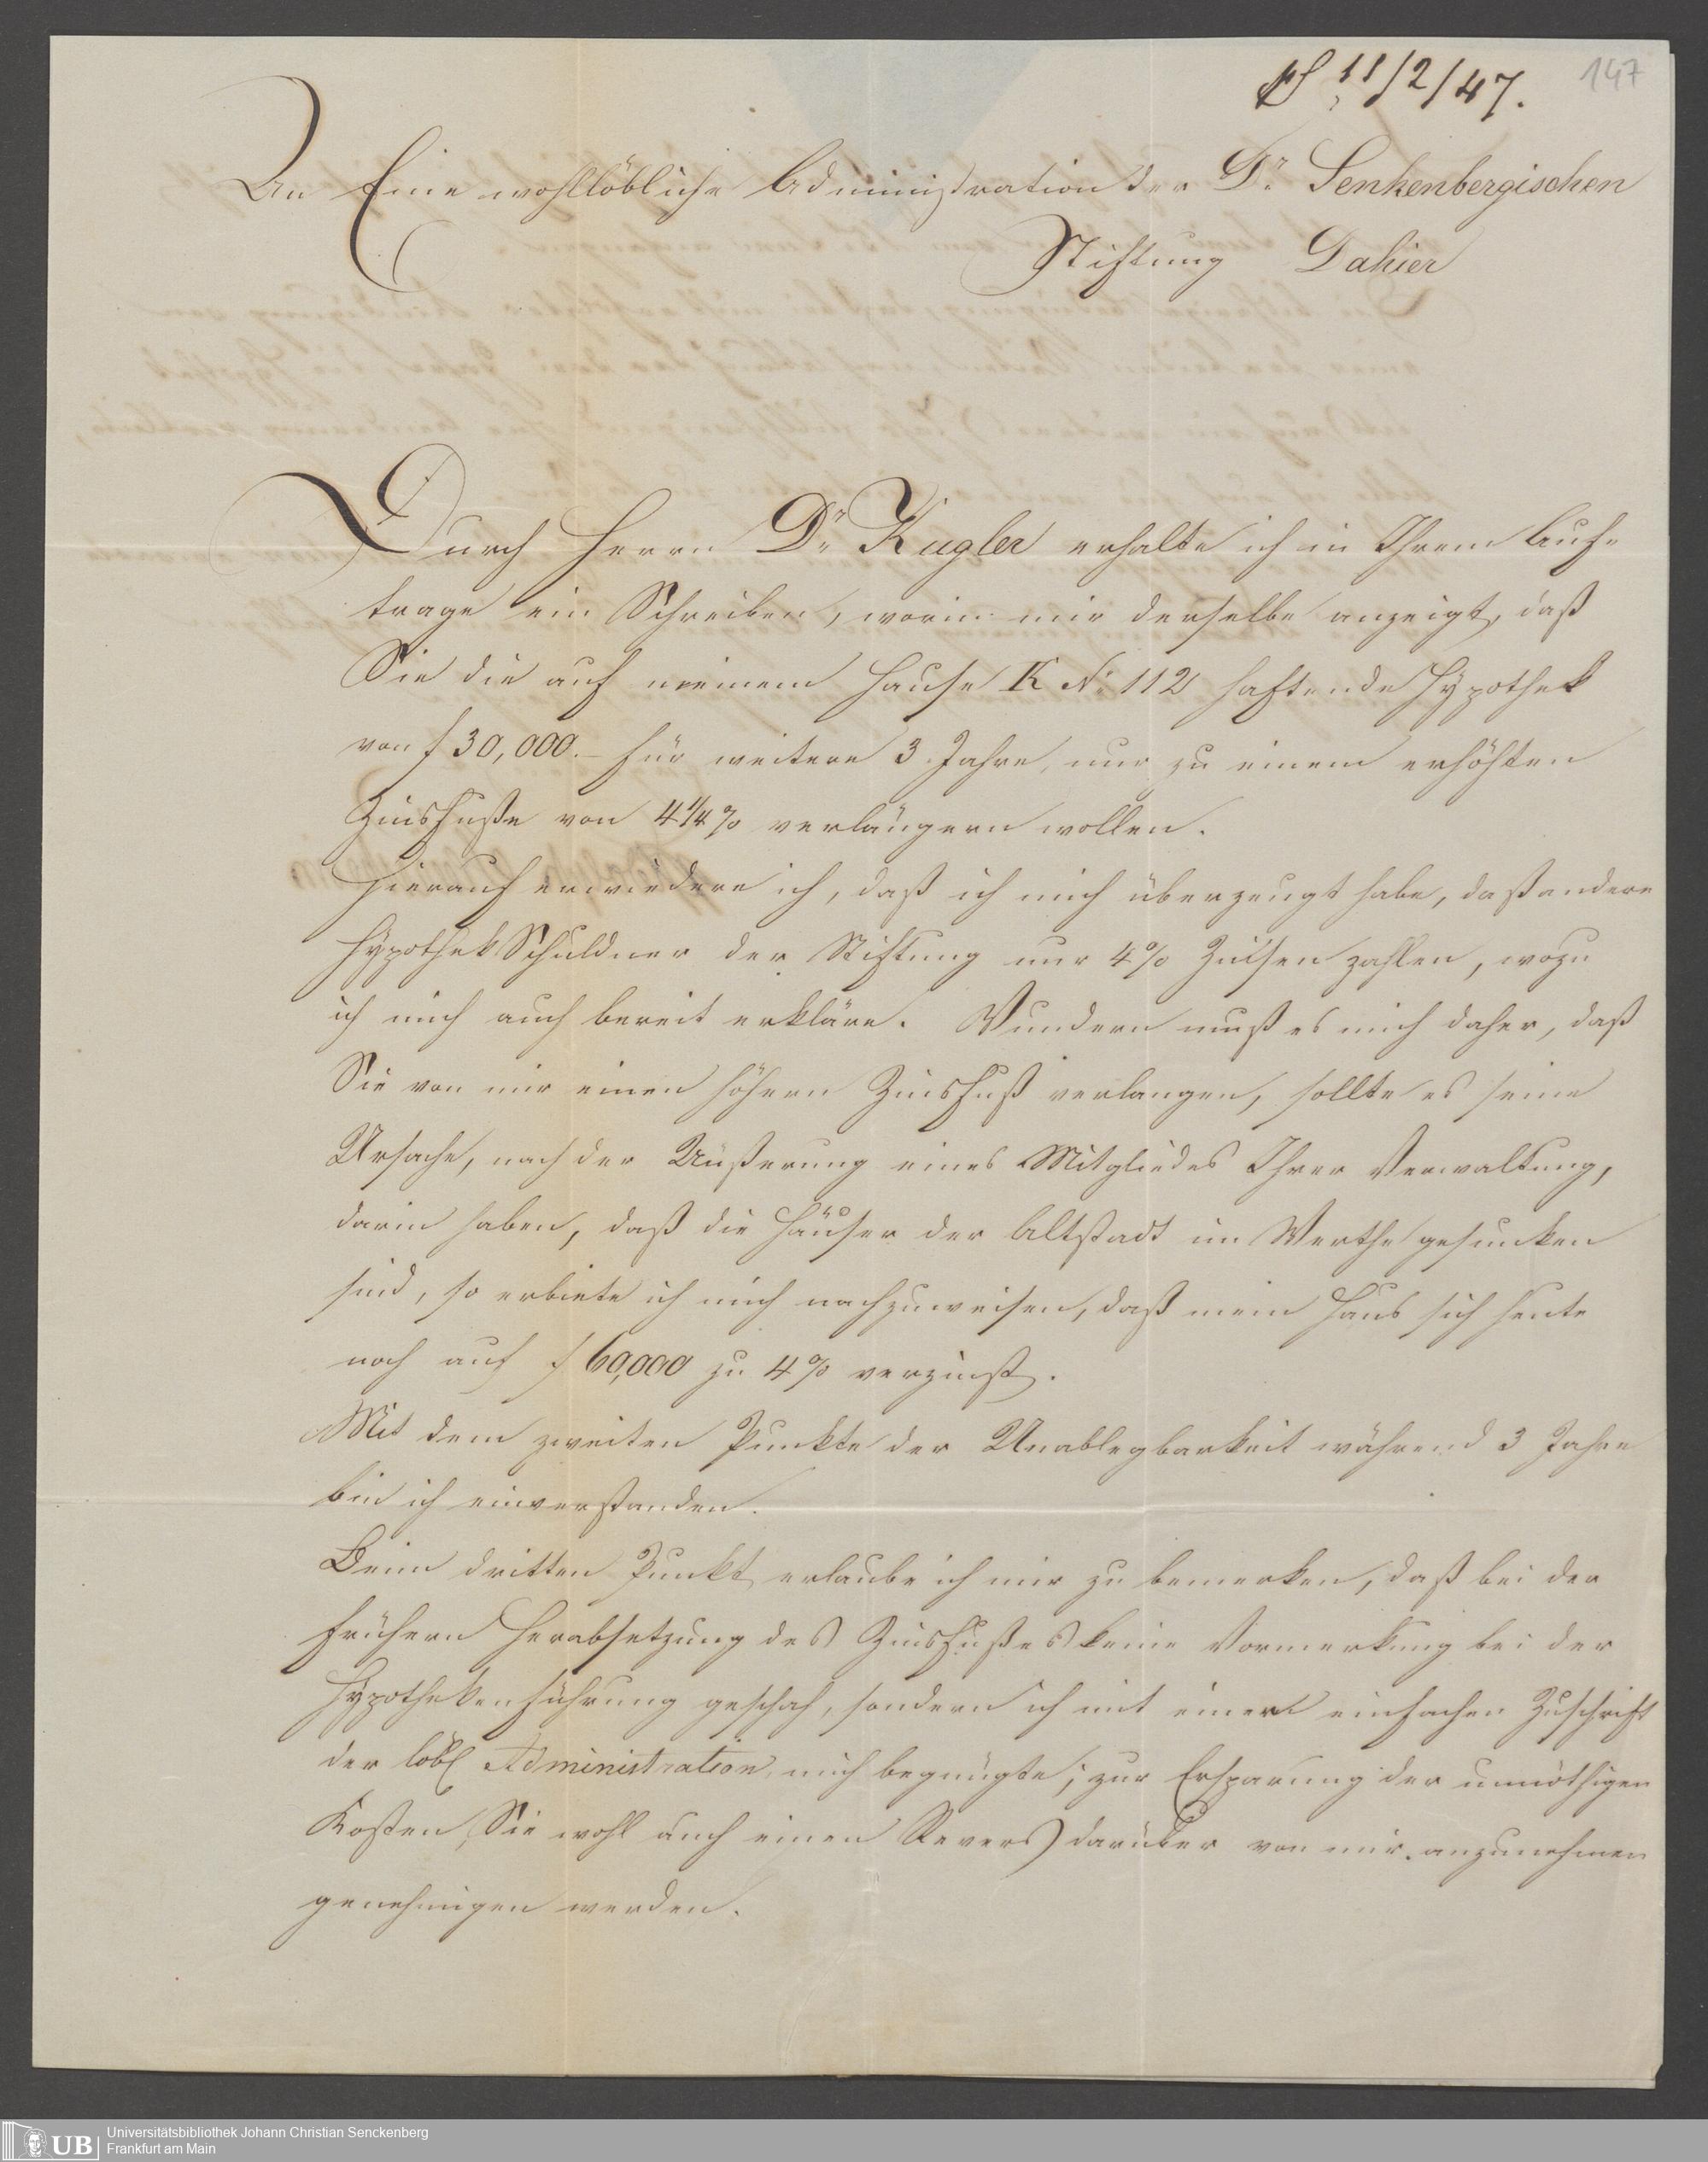 147
11/2/47.
An Eine wohllöbliche Administration der Dr. Senkenbergischen
Stiftung Dahier
Durch Herrn Dr. Kugler erhalte ich in Ihrem Auf-
trage ein Schreiben, worin mir derselbe anzeigt, daß
Sie die auf meinem Hause K No 112 haftende Hypothek
von f 30,000.- für weitere 3 Jahre, nur zu einem erhöhten
Zinsfuße von 4¼% verlängern wollen.
Hierauf erwiedere ich, daß ich mich überzeugt habe, daß andere
Hypothek Schuldner der Stiftung nur 4% Zinsen zahlen, wozu
ich mich auch bereit erkläre. Wundern muß es mich daher, daß
Sie von mir einen höhern Zinsfuß verlangen, sollte es seine
Ursache, nach der Äußerung eines Mitgliedes Ihrer Verwaltung,
darin haben, daß die Häuser der Altstadt im Werthe gesunken
sind, so erbiete ich mich nachzuweisen, daß mein Haus sich heute
noch auf f 60,000 zu 4% verzinst.
Mit dem zweiten Punkte der Unablegbarkeit während 3 Jahre
bin ich einverstanden.
Beim dritten Punkt erlaube ich mir zu bemerken, daß bei der
frühern Herabsetzung des Zinsfußes keine Vormerkung bei der
Hypothekenführung geschah, sondern ich mit einer einfachen Zuschrift
der löbl Administration mich begnügte; zur Ersparung der unnöthigen
Kosten, Sie wohl auch einen Revers darüber von mir anzunehmen
genehmigen werden.
UB
Universitätsbibliothek Johann Christian Senckenberg
Frankfurt am Main